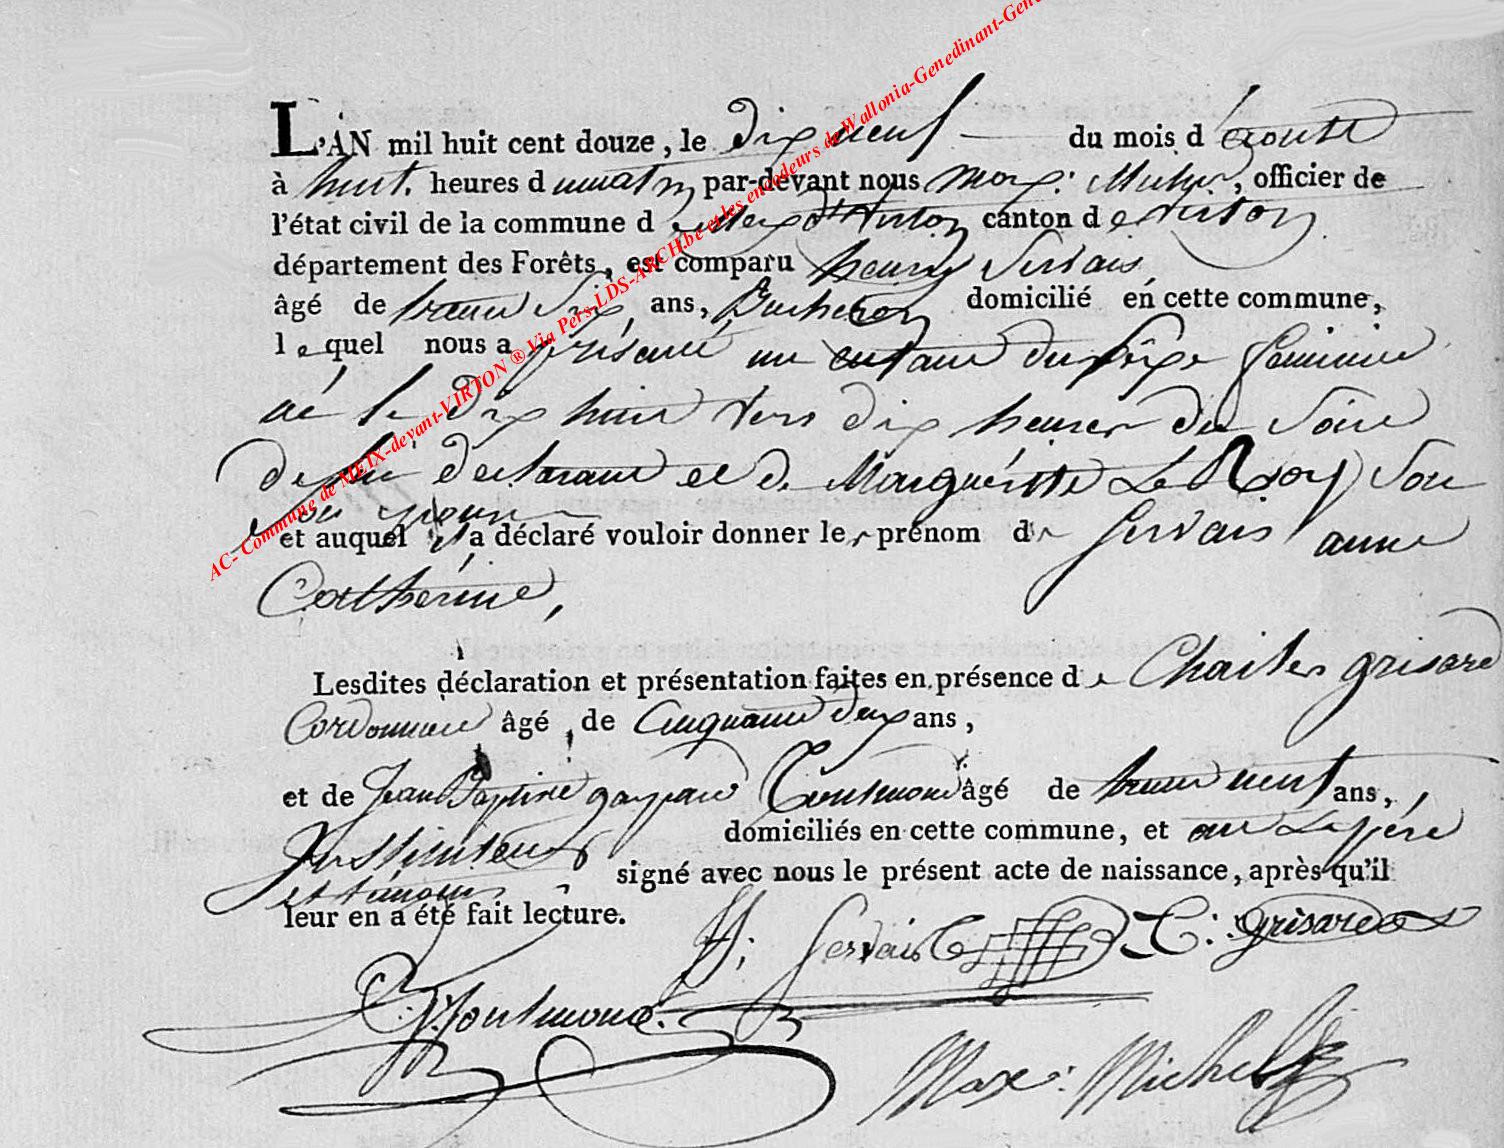 AC- Commune de MEIX-devant-VIRTON ® Via Pers-LDS-ARCH.be et les encodeurs de Wallonia-Genedinant-Gene
L'AN mil huit cent douze, le dix neuf du mois d'aoust
à huit heures du matin par-devant nous Max: Michel, officier de
l'état civil de la commune de Meix dt Virton canton de Virton
département des Forêts, est comparu henry Servais
âgé de trente six ans, Bucheron domicilié en cette commune,
lequel nous a présenté un enfant du sexe feminin
né le dix huit vers dix heures du soire
de lui declarant et de Marguéritte Le Roy son
son épouse
et auquel il a déclaré vouloir donner les prénom de Servais anne
Cathérine,
Lesdites déclaration et présentation faites en présence de Charles grisard
Cordonnier âgé de Cinquante deux ans,
et de Jean Baptiste gaspard âgé de trente neuf ans,
Instituteur domiciliés en cette commune, et ont Le père
et témoins signé avec nous le présent acte de naissance, après qu'il
leur en a été fait lecture.
H: Servais C: grisard
Max: Michel